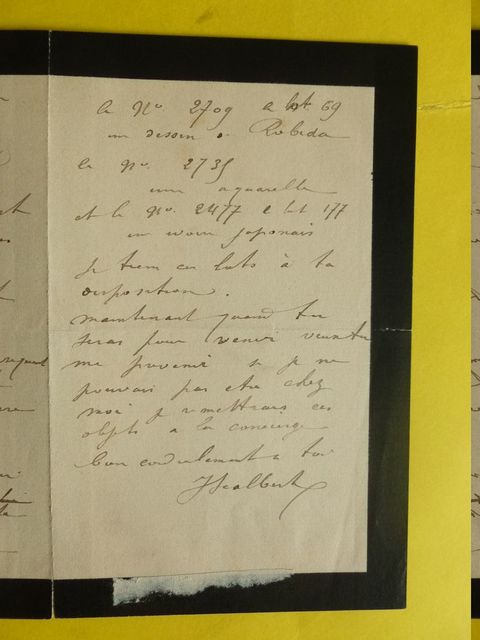 le No. 2709 e lot 69
un dessin de Robida
le No. 2735
une aquarelle
et le No. 2477 e lot 177
un ivoire japonais
Je tiens ces lots à ta
disposition.
maintenant quand tu
seras pour venir
me prevenir si je ne
pouvais pas etre chez
moi je remettrais ces
objets a la concierge
bien cordialement a toi